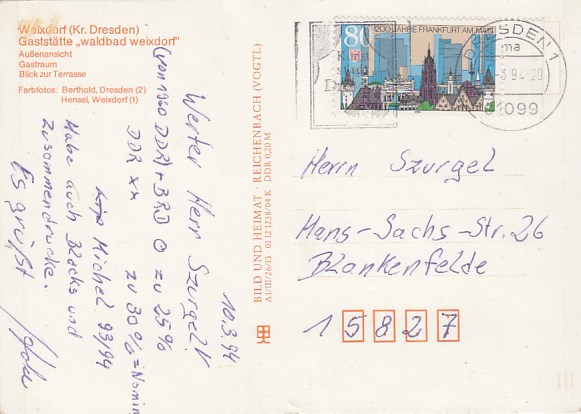 Weixdorf (Kr. Dresden)
Gaststätte „waldbad weixdorf"
Außenansicht
Gastraum
Blick zur Terrasse
Farbfotos: Berthold, Dresden (2)
Hensel, Weixdorf (1)
10.3.94
Werter Herr Szurgel!
(von 1960 DDR) + BRD ⊙ zu 25%
DDR xx zu 30% = Nomin
Michel 93/94
Habe auch Blocks und
Zusammendrucke.
Es grüßt
BILD UND HEIMAT · REICHENBACH (VOGTL)
A1/III/26/13 01 12 1238/04 K DDR 0,20 M
80
1200 JAHRE FRANKFURT AM MAIN
DRESDEN 1
3.94-20
01099
Herrn Szurgel
Hans-Sachs-Str. 26
Blankenfelde
15827